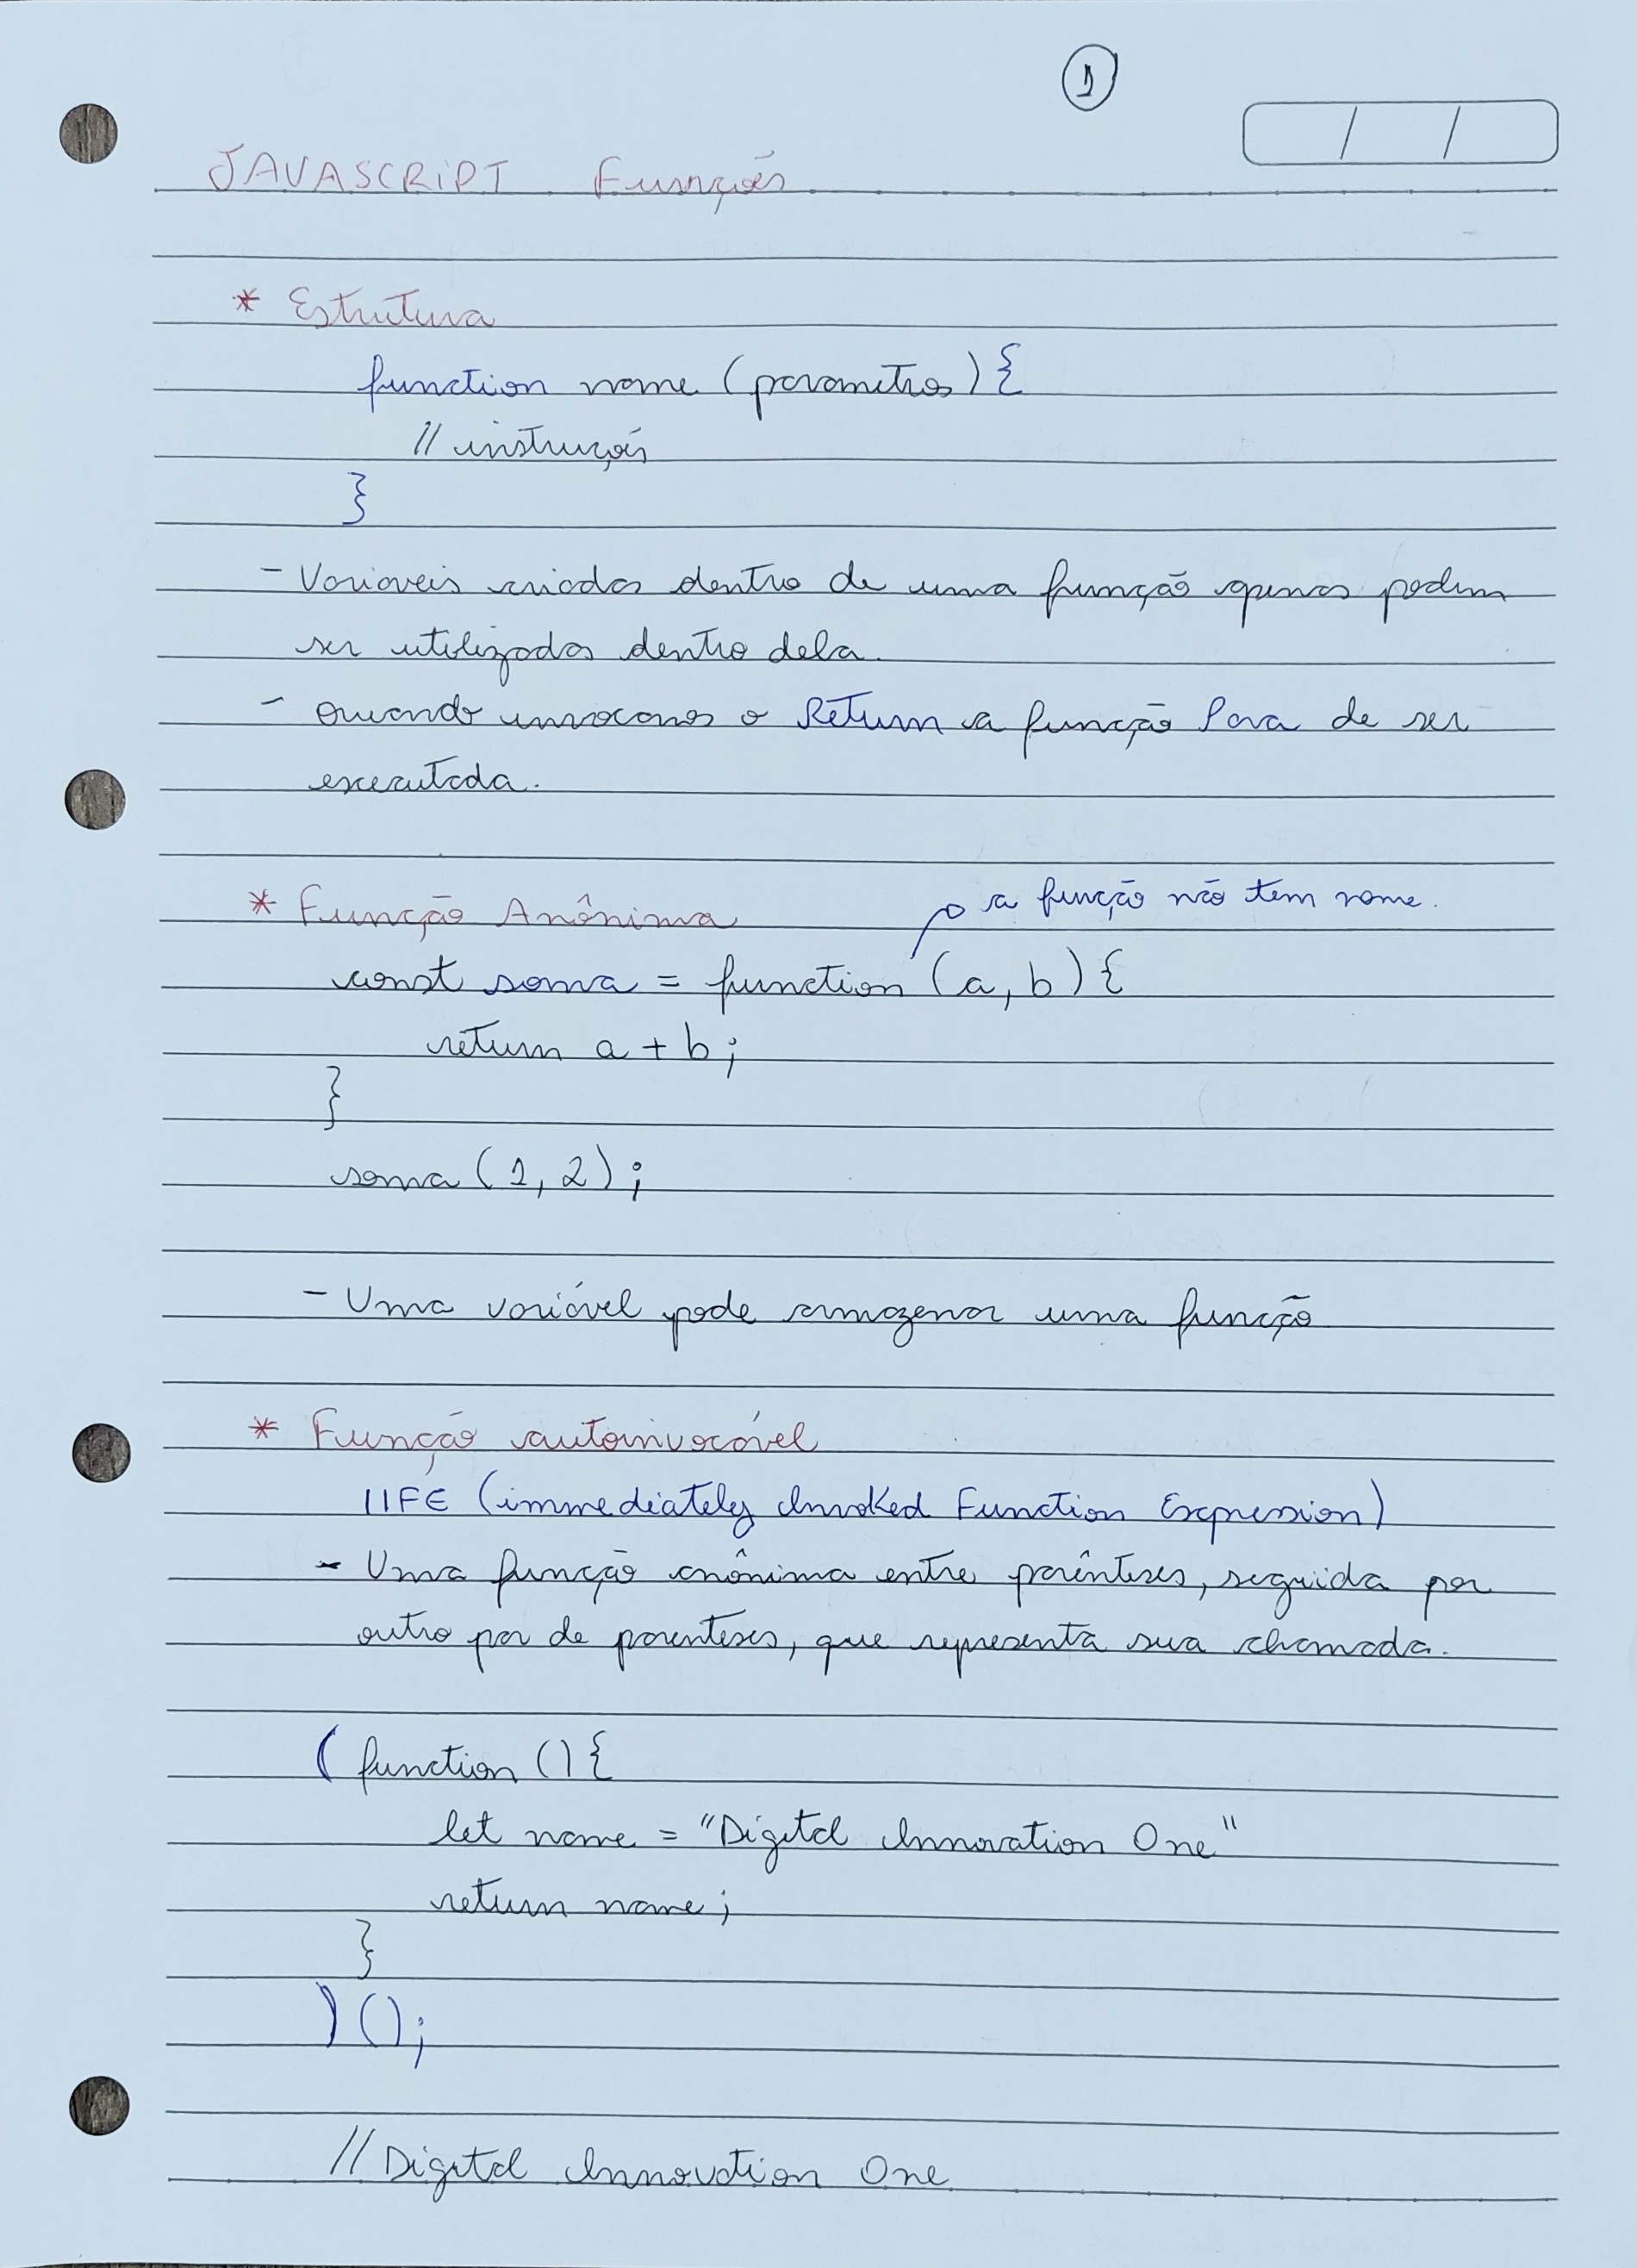 1
JAVASCRIPT Funções
* Estrutura
function nome (parametros) {
// instruções
}
- Variaveis criadas dentro de uma função apenas podem
ser utilizadas dentro dela.
- Quando invocamos o Return a função Para de ser
executada.
a função não tem nome.
* Função Anônima
const soma = function (a, b) {
return a + b;
}
soma (1, 2);
- Uma variável pode armazenar uma função
* Função autoinvocável
IIFE (immediately Invoked Function Expression)
- Uma função anônima entre parênteses, seguida por
outro par de parenteses, que representa sua chamada.
( function () {
let name = "Digital Innovation One"
return name;
}
) ();
// Digital Innovation One